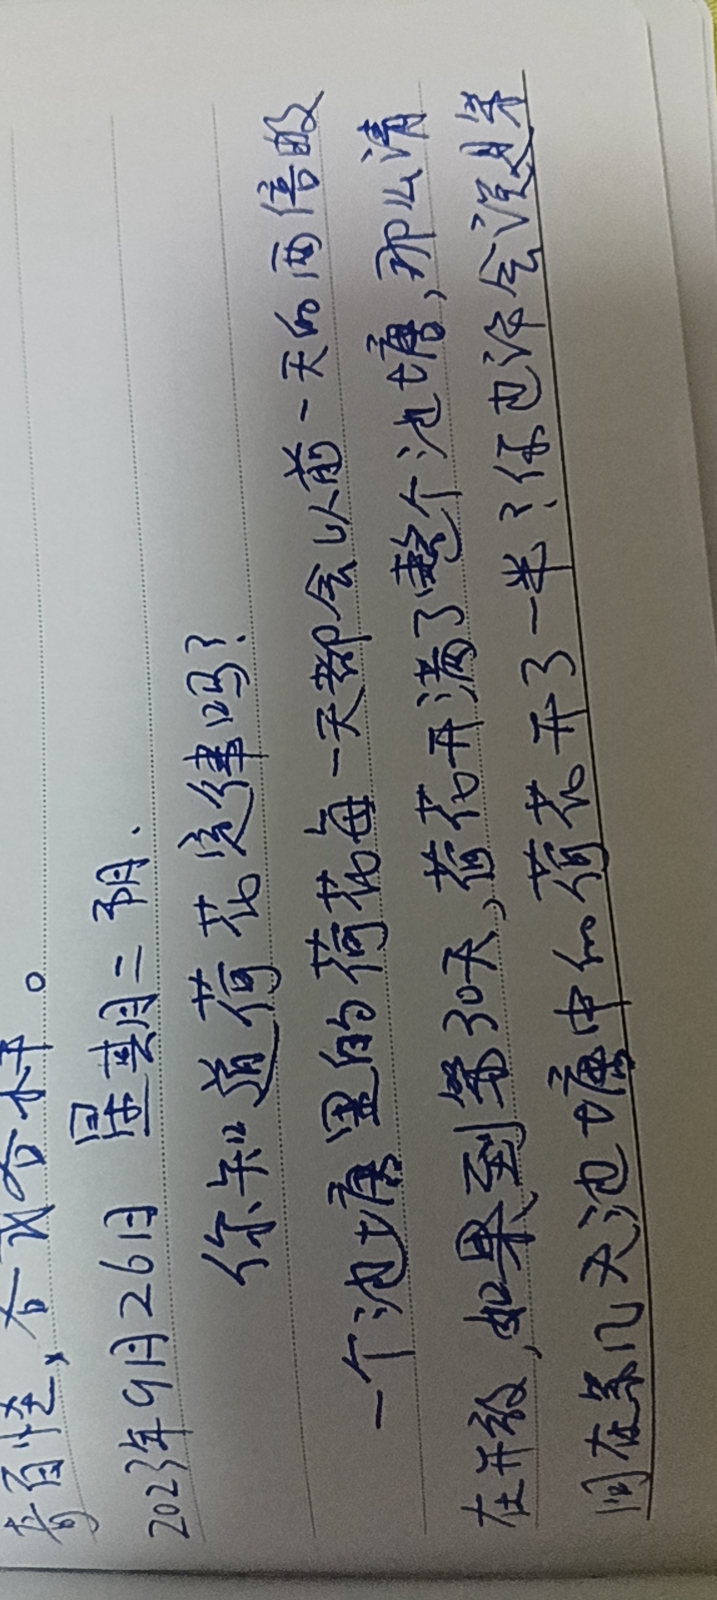 有责怪，否则否水平。
2023年9月26日 星期二 阴.
你知道荷花定律吗？
一个池塘里的荷花每一天都会以前一天的两倍的
在开放，如果到第30天，荷花开满了整个池塘，那么请
问在第几天池塘中的荷花开了一半？你也许会说是第